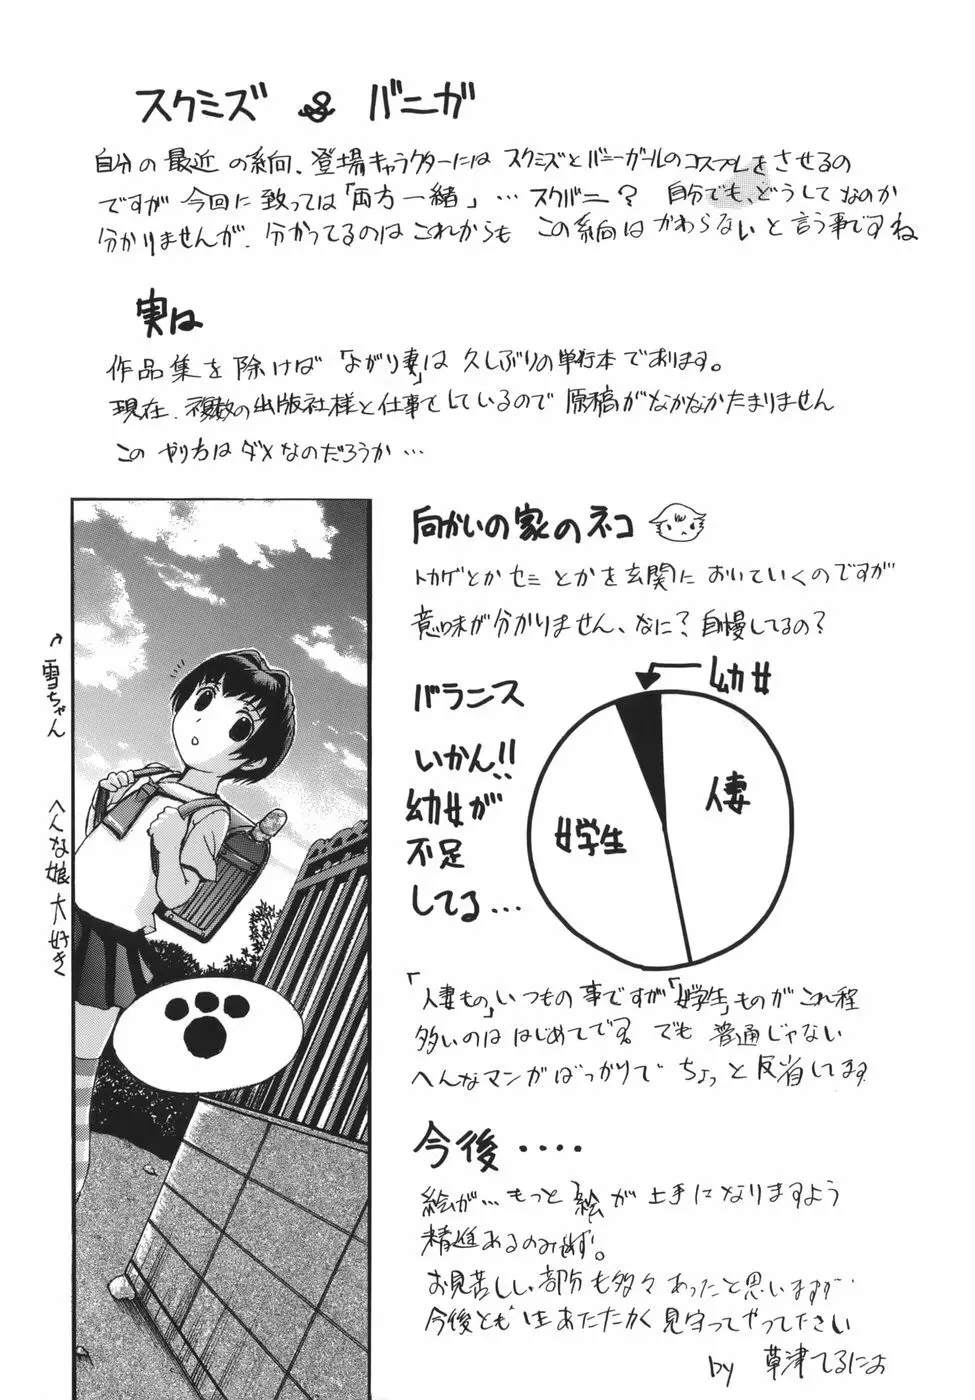 スクミズ & バニガ
自分の最近の系向、登場キャラクターにはスクミズとバニーガールのコスプレをさせるの
ですが今回に致っては「両方一緒」…スクバニ? 自分でも、どうしてなのか
分かりませんが、分かってるのはこれからもこの系向はかわらないと言う事ですね
実は
作品集を除けば「ながり妻」は久しぶりの単行本であります。
現在、複数の出版社様と仕事をしているので原稿がなかなかたまりません
このやり方はダメなのだろうか…
向かいの家のネコ
トカゲとかセミとかを玄関においていくのですが
意味が分かりません、なに?自慢してるの?
バランス
いかん!!
幼女が
不足
してる…
幼女
人妻
女学生
「人妻もの」いつもの事ですが「女学生」ものがこれ程
多いのははじめてです。でも普通じゃない
へんなマンガばっかりでちょっと反省してます
今後‥‥
絵が…もっと絵が上手になりますよう
精進あるのみです。
お見苦しい部分も多々あったと思いますが…
今後ともあたたかく見守ってやって下さい
by 草津てるにょ
雪ちゃん
へんな娘大好き